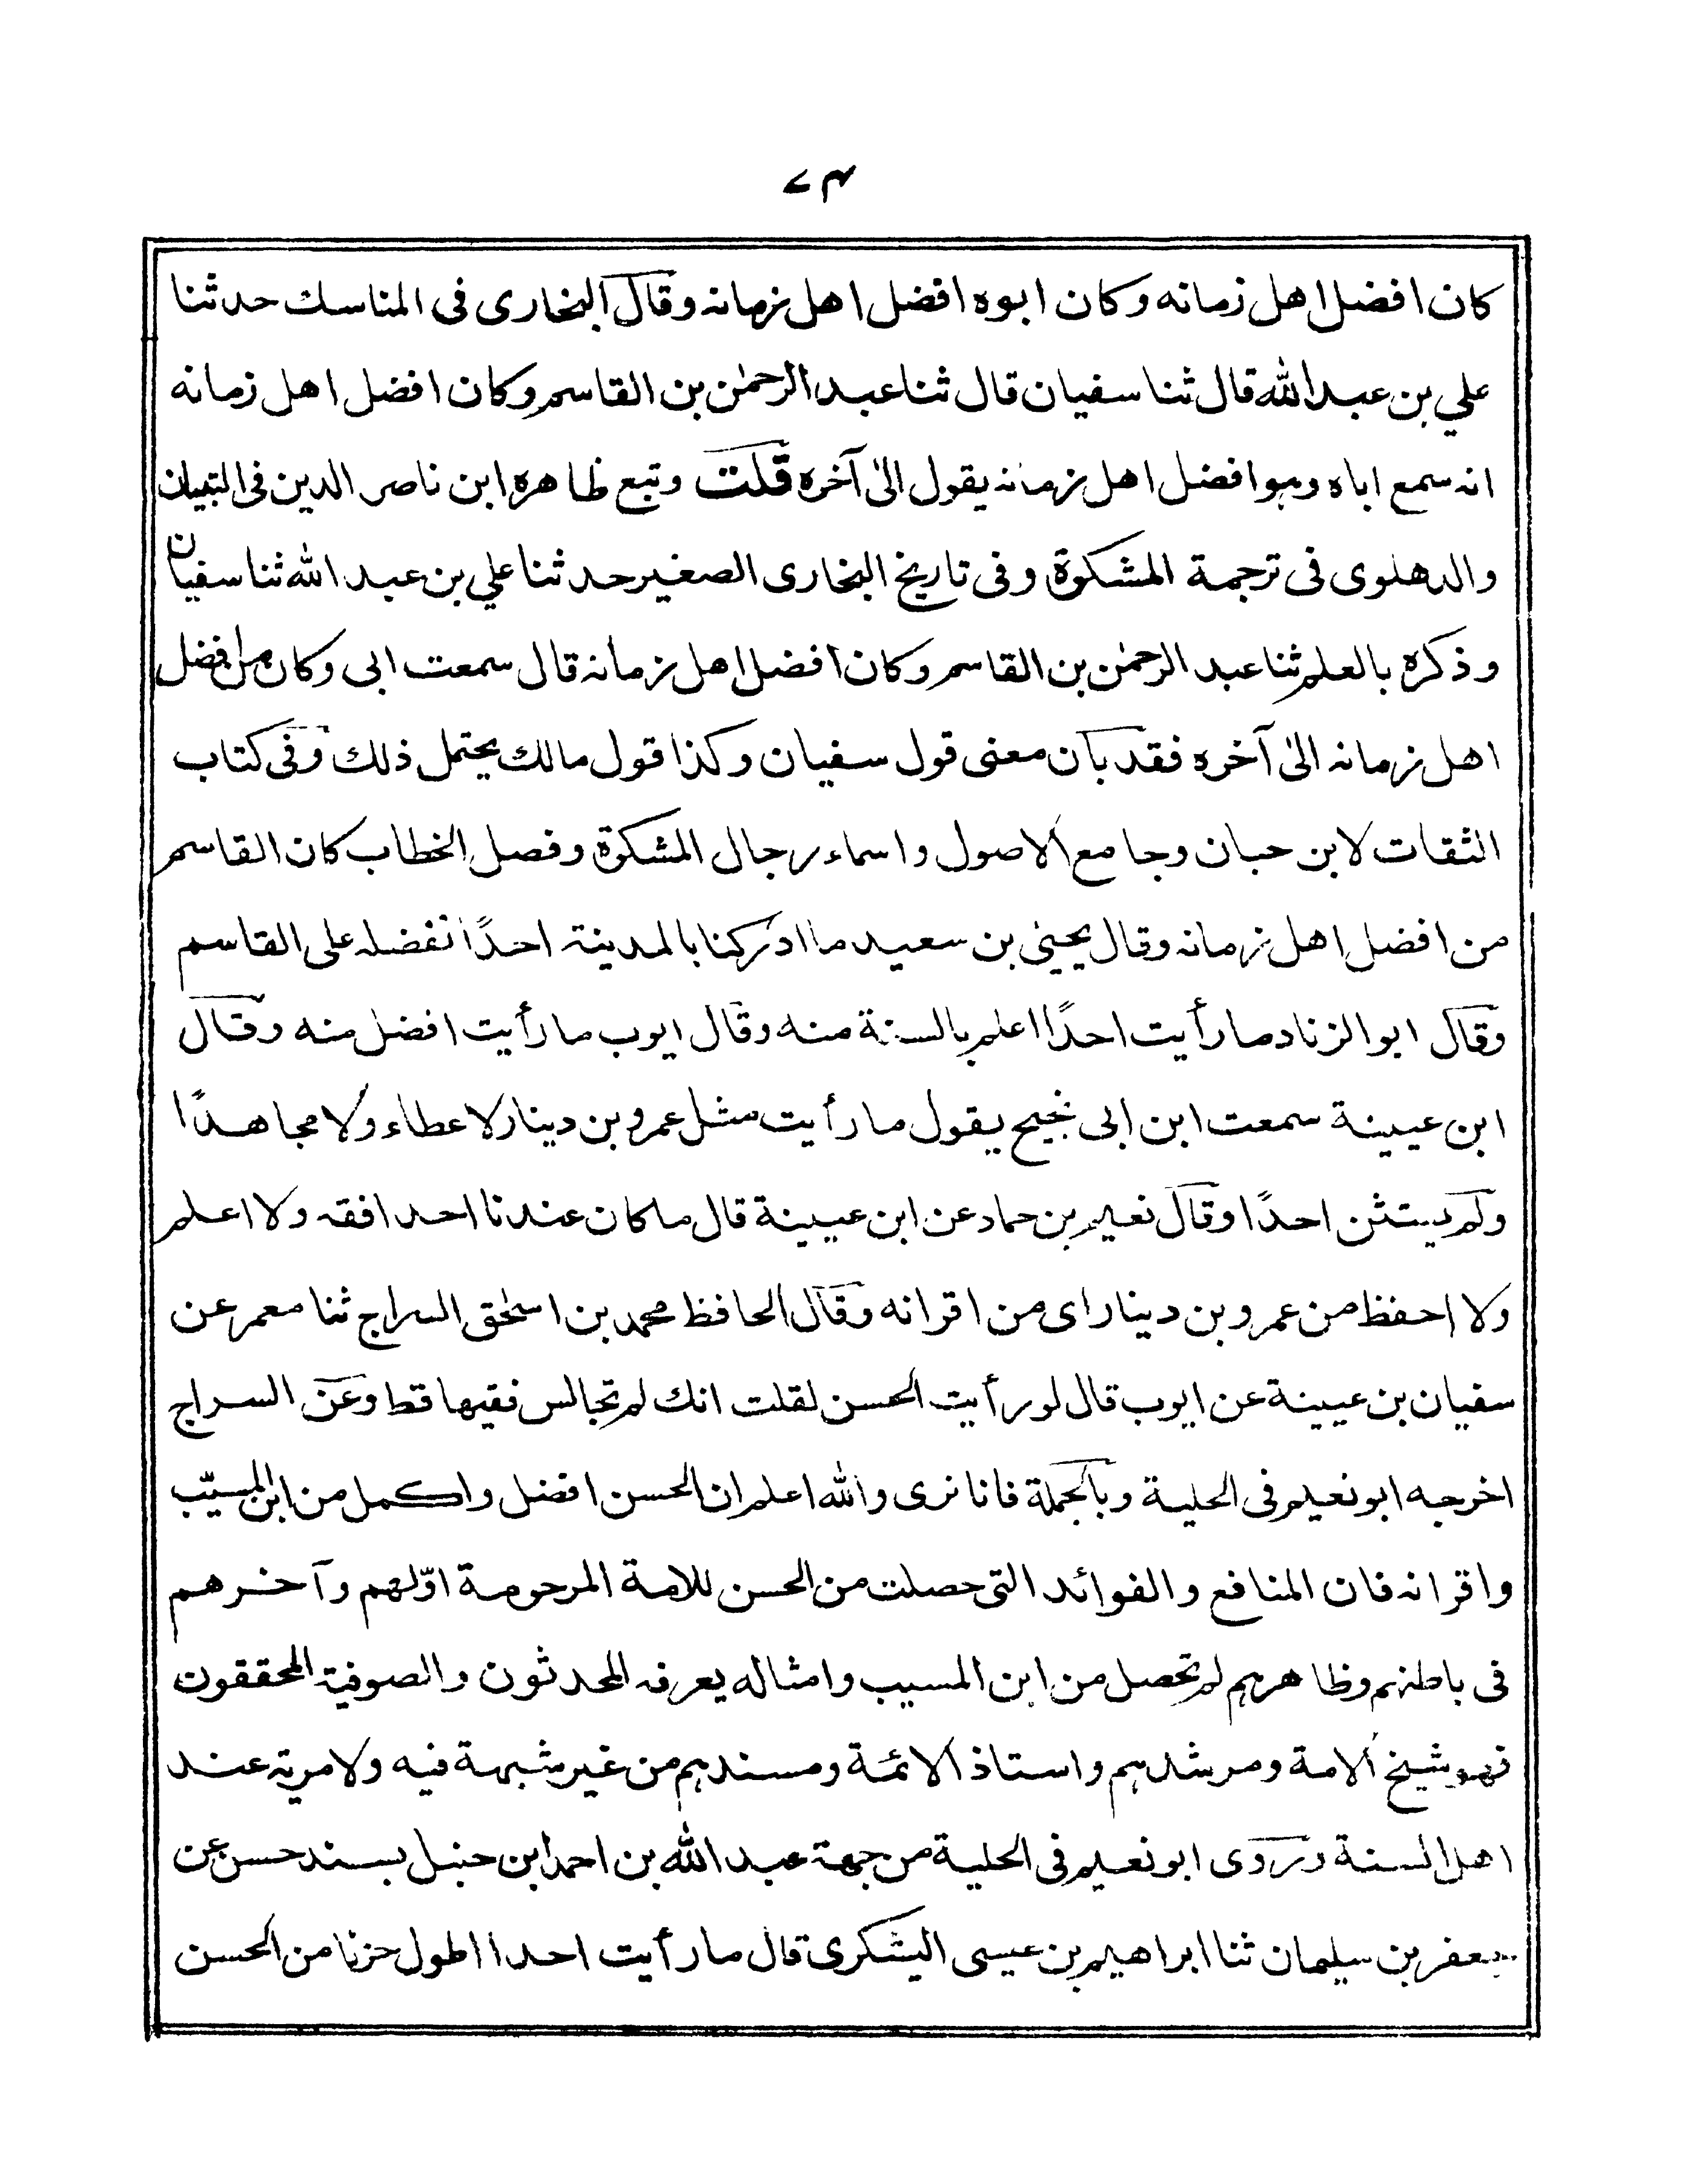 ۷۴
كان افضل اهل زمانه وكان ابوه افضل اهل زمانه وقال البخارى فى المناسك حدثنا
علي بن عبد الله قال ثنا سفيان قال ثنا عبد الرحمٰن بن القاسم وكان افضل اهل زمانه
انه سمع اباه وهو افضل اهل زمانه يقول الىٰ آخره قلت وتبع ظاهره ابن ناصر الدين فى التبيان
والدهلوى فى ترجمة المشكوة وفى تاريخ البخارى الصغير حدثنا علي بن عبد الله ثنا سفيان
وذكره بالعلم ثنا عبد الرحمٰن بن القاسم وكان افضل اهل زمانه قال سمعت ابى وكان من افضل
اهل زمانه الىٰ آخره فقد بان معنى قول سفيان وكذا قول مالك يحتمل ذلك وفى كتاب
الثقات لابن حبان وجامع الاصول واسماء رجال المشكوة وفصل الخطاب كان القاسم
من افضل اهل زمانه وقال يحيىٰ بن سعيد ما ادركنا بالمدينة احدًا نفضله على القاسم
وقال ابو الزناد ما رأيت احدًا اعلم بالسنة منه وقال ايوب ما رأيت افضل منه وقال
ابن عيينة سمعت ابن ابى نجيح يقول ما رأيت مثل عمرو بن دينار لا عطاء ولا مجاهدًا
ولم يستثن احدًا وقال نعيم بن حماد عن ابن عيينة قال ما كان عندنا احد افقه ولا اعلم
ولا احفظ من عمرو بن دينار اى من اقرانه وقال الحافظ محمد بن اسحٰق السراج ثنا معمر عن
سفيان بن عيينة عن ايوب قال لو رأيت الحسن لقلت انك لم تجالس فقيها قط وعن السراج
اخرجه ابو نعيم فى الحلية وبالجملة فانا نرى والله اعلم ان الحسن افضل واكمل من ابن المسيّب
واقرانه فان المنافع والفوائد التى حصلت من الحسن للامة المرحومة اوّلهم وآخرهم
فى باطنهم وظاهرهم لم تحصل من ابن المسيب وامثاله يعرفه المحدثون والصوفية المحققون
فهو شيخ الامة ومرشدهم واستاذ الائمة ومسندهم من غير شبهة فيه ولا مرية عند
اهل السنة وروى ابو نعيم فى الحلية من جهة عبد الله بن احمد ابن حنبل بسند حسن عن
جعفر بن سليمان ثنا ابراهيم بن عيسى اليشكرى قال ما رأيت احدا اطول حزنا من الحسن